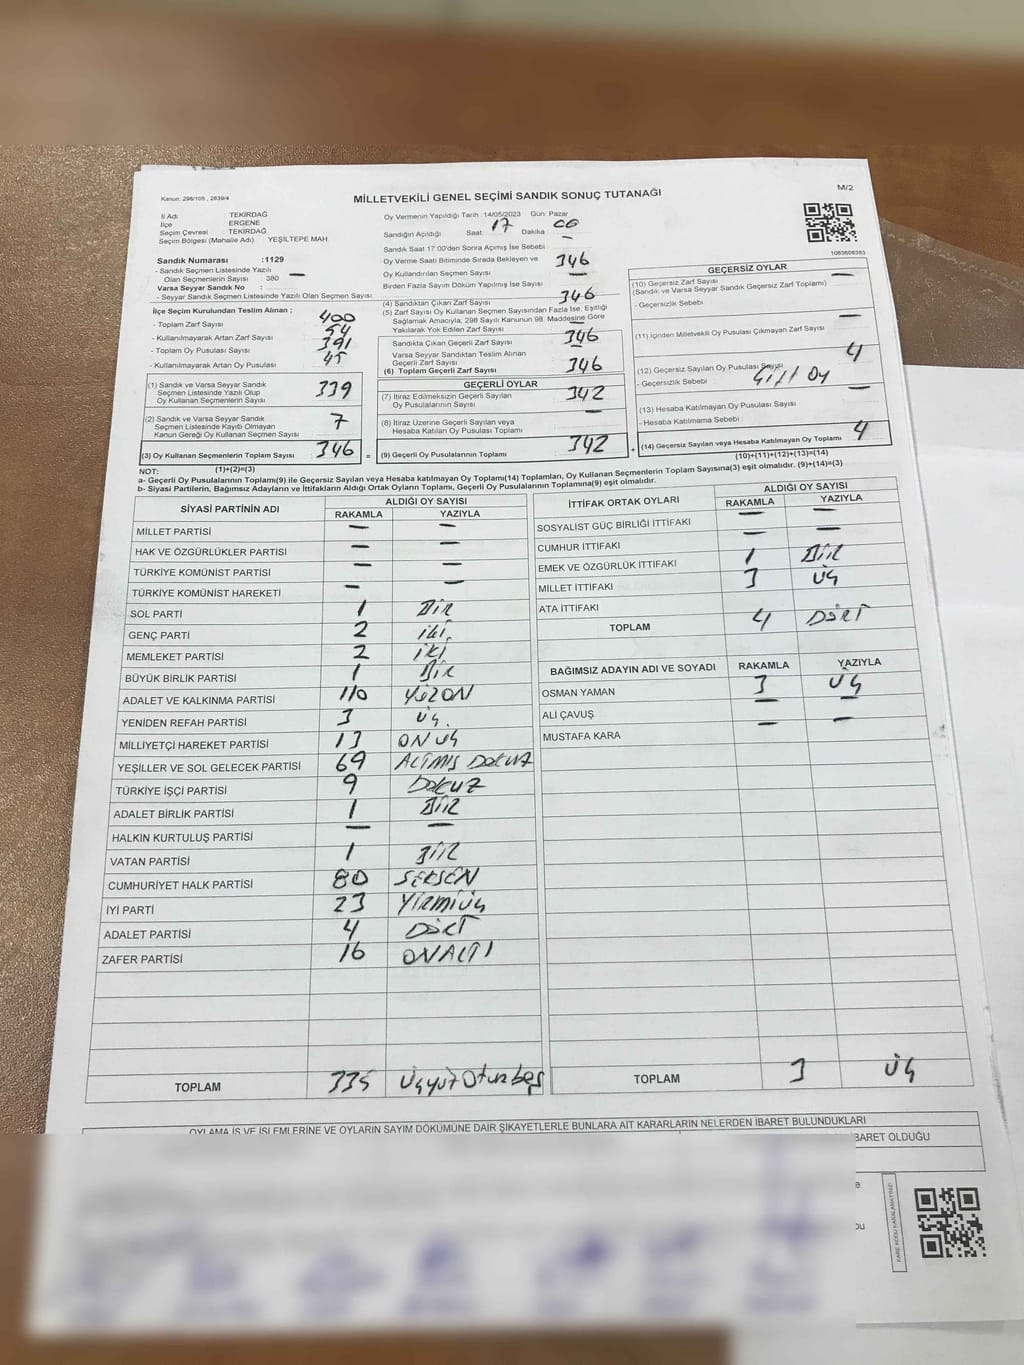 Kanun. 298/105 , 2839/4
MİLLETVEKİLİ GENEL SEÇİMİ SANDIK SONUÇ TUTANAĞI
M/2
İl Adı : TEKİRDAĞ
İlçe : ERGENE
Seçim Çevresi : TEKİRDAĞ
Seçim Bölgesi (Mahalle Adı) YEŞİLTEPE MAH.
Sandık Numarası :1129
- Sandık Seçmen Listesinde Yazılı
Olan Seçmenlerin Sayısı : 380
Varsa Seyyar Sandık No : —
- Seyyar Sandık Seçmen Listesinde Yazılı Olan Seçmen Sayısı:
İlçe Seçim Kurulundan Teslim Alınan ;
- Toplam Zarf Sayısı 400
- Kullanılmayarak Artan Zarf Sayısı 54
- Toplam Oy Pusulası Sayısı 391
- Kullanılmayarak Artan Oy Pusulası 45
(1) Sandık ve Varsa Seyyar Sandık
Seçmen Listesinde Yazılı Olup
Oy Kullanan Seçmenlerin Sayısı 339
(2) Sandık ve Varsa Seyyar Sandık
Seçmen Listesinde Kayıtlı Olmayan
Kanun Gereği Oy Kullanan Seçmen Sayısı 7
(3) Oy Kullanan Seçmenlerin Toplam Sayısı 346 =
(1)+(2)=(3)
Oy Vermenin Yapıldığı Tarih : 14/05/2023 Gün: Pazar
Sandığın Açıldığı Saat: 17 Dakika : 00
Sandık Saat 17:00'den Sonra Açımış İse Sebebi : —
Oy Verme Saati Bitiminde Sırada Bekleyen ve
Oy Kullandırılan Seçmen Sayısı 346
Birden Fazla Sayım Döküm Yapılmış İse Sayısı —
(4) Sandıktan Çıkan Zarf Sayısı 346
(5) Zarf Sayısı Oy Kullanan Seçmen Sayısından Fazla İse, Eşitliği
Sağlamak Amacıyla; 298 Sayılı Kanunun 98. Maddesine Göre
Yakılarak Yok Edilen Zarf Sayısı —
Sandıkta Çıkan Geçerli Zarf Sayısı 346
Varsa Seyyar Sandıktan Teslim Alınan
Geçerli Zarf Sayısı —
(6) Toplam Geçerli Zarf Sayısı 346
GEÇERLİ OYLAR
(7) İtiraz Edilmeksizin Geçerli Sayılan
Oy Pusulalarının Sayısı 342
(8) İtiraz Üzerine Geçerli Sayılan veya
Hesaba Katılan Oy Pusulaları Toplamı —
(9) Geçerli Oy Pusulalarının Toplamı 342 +
1083608383
GEÇERSİZ OYLAR
(10) Geçersiz Zarf Sayısı —
(Sandık ve Varsa Seyyar Sandık Geçersiz Zarf Toplamı)
- Geçersizlik Sebebi :
(11) İçinden Milletvekili Oy Pusulası Çıkmayan Zarf Sayısı —
(12) Geçersiz Sayılan Oy Pusulası Sayısı 4
- Geçersizlik Sebebi : Çift Oy
(13) Hesaba Katılmayan Oy Pusulası Sayısı —
- Hesaba Katılmama Sebebi :
(14) Geçersiz Sayılan veya Hesaba Katılmayan Oy Toplamı 4
(10)+(11)+(12)+(13)=(14)
NOT:
a- Geçerli Oy Pusulalarının Toplamı(9) ile Geçersiz Sayılan veya Hesaba katılmayan Oy Toplamı(14) Toplamları, Oy Kullanan Seçmenlerin Toplam Sayısına(3) eşit olmalıdır. (9)+(14)=(3)
b- Siyasi Partilerin, Bağımsız Adayların ve İttifakların Aldığı Ortak Oyların Toplamı, Geçerli Oy Pusulalarının Toplamına(9) eşit olmalıdır.
SİYASİ PARTİNİN ADI ALDIĞI OY SAYISI
RAKAMLA YAZIYLA
MİLLET PARTİSİ — —
HAK VE ÖZGÜRLÜKLER PARTİSİ — —
TÜRKİYE KOMÜNİST PARTİSİ — —
TÜRKİYE KOMÜNİST HAREKETİ — —
SOL PARTİ 1 BİR
GENÇ PARTİ 2 iki
MEMLEKET PARTİSİ 2 iki
BÜYÜK BİRLİK PARTİSİ 1 BİR
ADALET VE KALKINMA PARTİSİ 110 YÜZON
YENİDEN REFAH PARTİSİ 3 üç
MİLLİYETÇİ HAREKET PARTİSİ 13 ONÜÇ
YEŞİLLER VE SOL GELECEK PARTİSİ 69 ALTMIŞ DOKUZ
TÜRKİYE İŞÇİ PARTİSİ 9 DOKUZ
ADALET BİRLİK PARTİSİ 1 BİR
HALKIN KURTULUŞ PARTİSİ — —
VATAN PARTİSİ 1 BİR
CUMHURİYET HALK PARTİSİ 80 SEKSEN
İYİ PARTİ 23 YİRMİÜÇ
ADALET PARTİSİ 4 DÖRT
ZAFER PARTİSİ 16 ONALTI
TOPLAM 335 Üçyüz Otuz beş
İTTİFAK ORTAK OYLARI ALDIĞI OY SAYISI
RAKAMLA YAZIYLA
SOSYALİST GÜÇ BİRLİĞİ İTTİFAKI — —
CUMHUR İTTİFAKI — —
EMEK VE ÖZGÜRLÜK İTTİFAKI 1 BİR
MİLLET İTTİFAKI 3 üÇ
ATA İTTİFAKI
TOPLAM 4 DÖRT
BAĞIMSIZ ADAYIN ADI VE SOYADI RAKAMLA YAZIYLA
OSMAN YAMAN 3 ÜÇ
ALİ ÇAVUŞ — —
MUSTAFA KARA — —
TOPLAM 3 ÜÇ
OYLAMA İŞ VE İŞLEMLERİNE VE OYLARIN SAYIM DÖKÜMÜNE DAİR ŞİKAYETLERLE BUNLARA AİT KARARLARIN NELERDEN İBARET BULUNDUKLARI
BARET OLDUĞU
KARE KODU KARALAMAYINIZ!